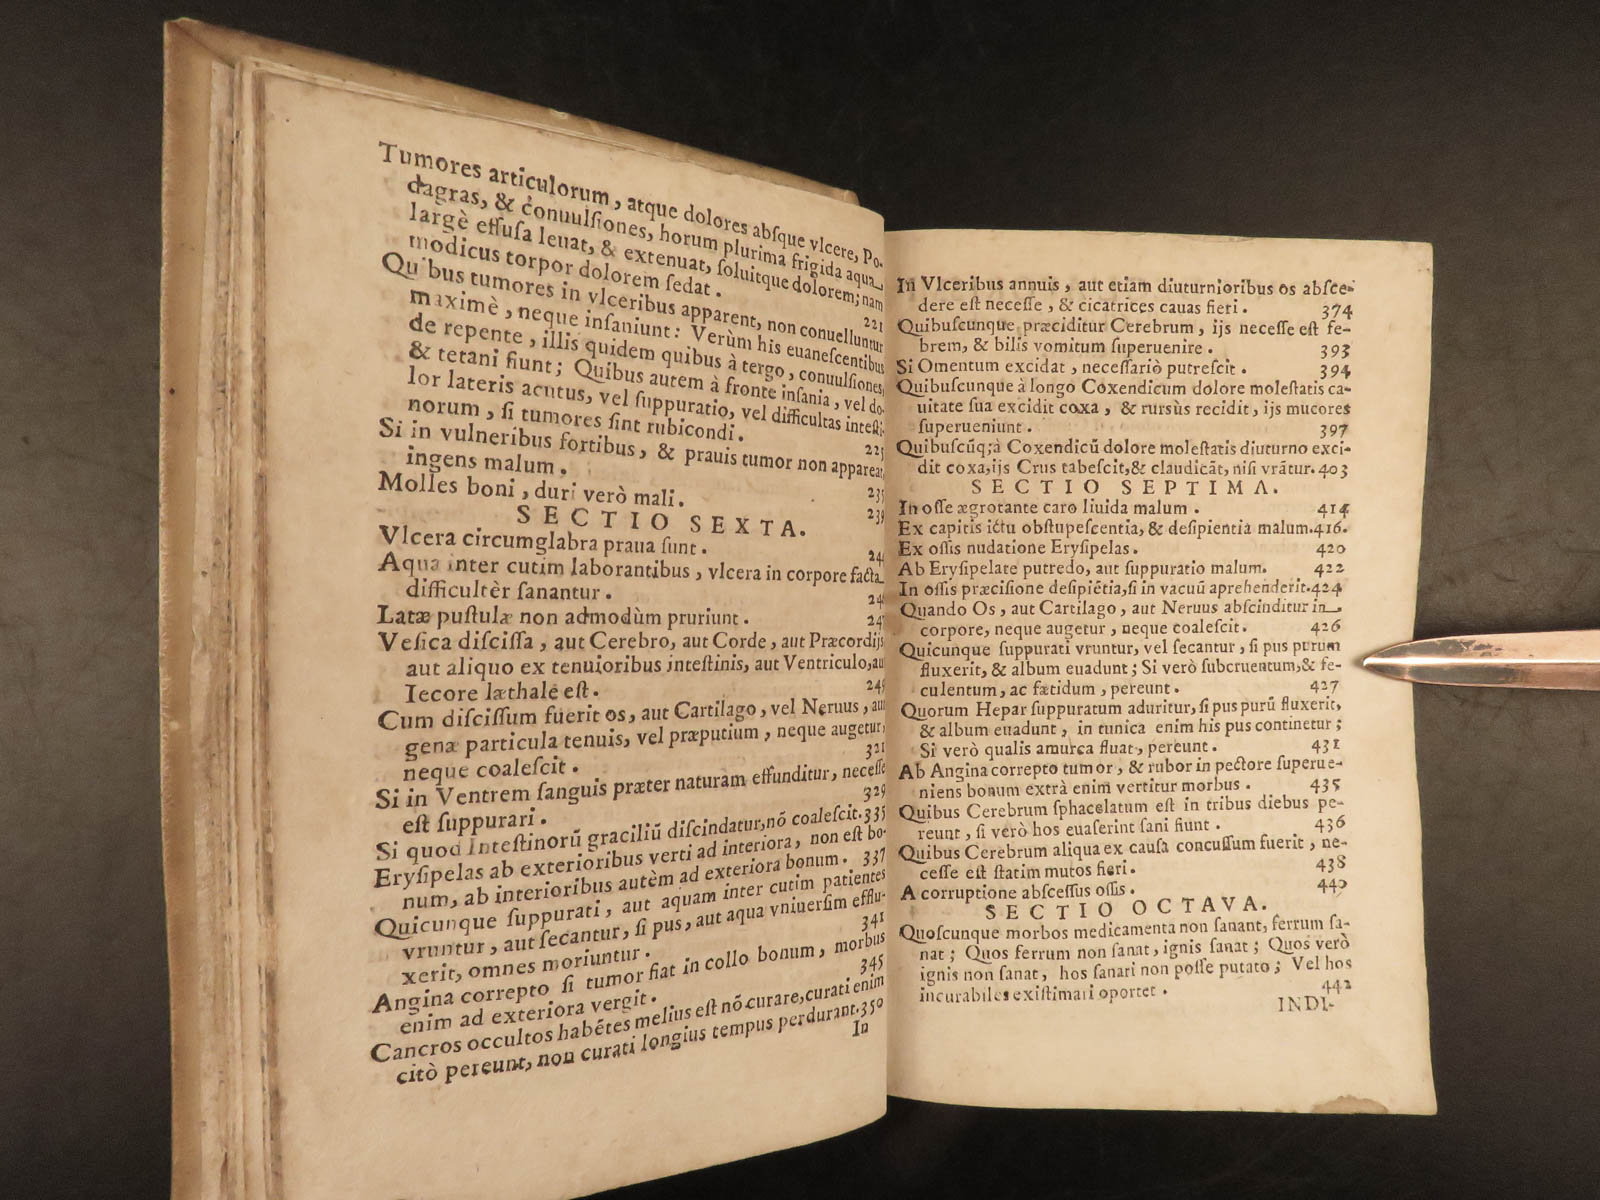 Tumores articulorum, atque dolores abſque vlcere, Po-
dagras, & conuulſiones, horum plurima frigida aqua
largè effuſa leuat, & extenuat, ſoluitque dolorem; nam
modicus torpor dolorem ſedat. 221
Quibus tumores in vlceribus apparent, non conuelluntur
maximè, neque inſaniunt: Verùm his euaneſcentibus
de repente, illis quidem quibus à tergo, conuulſiones,
& tetani fiunt; Quibus autem à fronte inſania, vel do-
lor lateris acutus, vel ſuppuratio, vel difficultas inteſti-
norum, ſi tumores ſint rubicondi. 225
Si in vulneribus fortibus, & prauis tumor non appareat,
ingens malum. 235
Molles boni, duri verò mali. 239
SECTIO SEXTA.
Vlcera circumglabra praua ſunt. 24
Aqua inter cutim laborantibus, vlcera in corpore facta
difficultèr ſanantur. 24
Latæ puſtulæ non admodùm pruriunt. 247
Veſica diſciſſa, aut Cerebro, aut Corde, aut Præcordijs
aut aliquo ex tenuioribus inteſtinis, aut Ventriculo, aut
Iecore læthale eſt. 249
Cum diſciſſum fuerit os, aut Cartilago, vel Neruus, aut
genæ particula tenuis, vel præputium, neque augetur,
neque coaleſcit. 321
Si in Ventrem ſanguis præter naturam effunditur, neceſſe
eſt ſuppurari. 329
Si quod Inteſtinorũ graciliũ diſcindatur, nõ coaleſcit. 335
Eryſipelas ab exterioribus verti ad interiora, non eſt bo-
num, ab interioribus autèm ad exteriora bonum. 337
Quicunque ſuppurati, aut aquam inter cutim patientes
vruntur, aut ſecantur, ſi pus, aut aqua vniuerſim efflu-
xerit, omnes moriuntur. 341
Angina correpto ſi tumor fiat in collo bonum, morbus
enim ad exteriora vergit. 345
Cancros occultos habẽtes melius eſt nõ curare, curati enim
citò pereunt, non curati longius tempus perdurant. 350
In
In Vlceribus annuis, aut etiam diuturnioribus os abſce-
dere eſt neceſſe, & cicatrices cauas fieri. 374
Quibuſcunque præciditur Cerebrum, ijs neceſſe eſt fe-
brem, & bilis vomitum ſuperuenire. 393
Si Omentum excidat, neceſſariò putreſcit. 394
Quibuſcunque à longo Coxendicum dolore moleſtatis ca-
uitate ſua excidit coxa, & rursùs recidit, ijs mucores
ſuperueniunt. 397
Quibuſcũq; à Coxendicũ dolore moleſtatis diuturno exci-
dit coxa, ijs Crus tabeſcit, & claudicãt, niſi vrãtur. 403
SECTIO SEPTIMA.
In oſſe ægrotante caro liuida malum. 414
Ex capitis ictu obſtupeſcentia, & deſipientia malum. 416.
Ex oſſis nudatione Eryſipelas. 420
Ab Eryſipelate putredo, aut ſuppuratio malum. 422
In oſſis præciſione deſipiẽtia, ſi in vacuũ aprehenderit. 424
Quando Os, aut Cartilago, aut Neruus abſcinditur in
corpore, neque augetur, neque coaleſcit. 426
Quicunque ſuppurati vruntur, vel ſecantur, ſi pus purum
fluxerit, & album euadunt; Si verò ſubcruentum, & fe-
culentum, ac fætidum, pereunt. 427
Quorum Hepar ſuppuratum aduritur, ſi pus purũ fluxerit,
& album euadunt, in tunica enim his pus continetur;
Si verò qualis amurca fluat, pereunt. 431
Ab Angina correpto tumor, & rubor in pectore ſuperue-
niens bonum extrà enim vertitur morbus. 435
Quibus Cerebrum ſphacelatum eſt in tribus diebus pe-
reunt, ſi verò hos euaſerint ſani fiunt. 436
Quibus Cerebrum aliqua ex cauſa concuſſum fuerit, ne-
ceſſe eſt ſtatim mutos fieri. 438
A corruptione abſceſſus oſſis. 440
SECTIO OCTAVA.
Quoſcunque morbos medicamenta non ſanant, ferrum ſa-
nat; Quos ferrum non ſanat, ignis ſanat; Quos verò
ignis non ſanat, hos ſanari non poſſe putato; Vel hos
incurabiles exiſtimari oportet. 442
INDI-